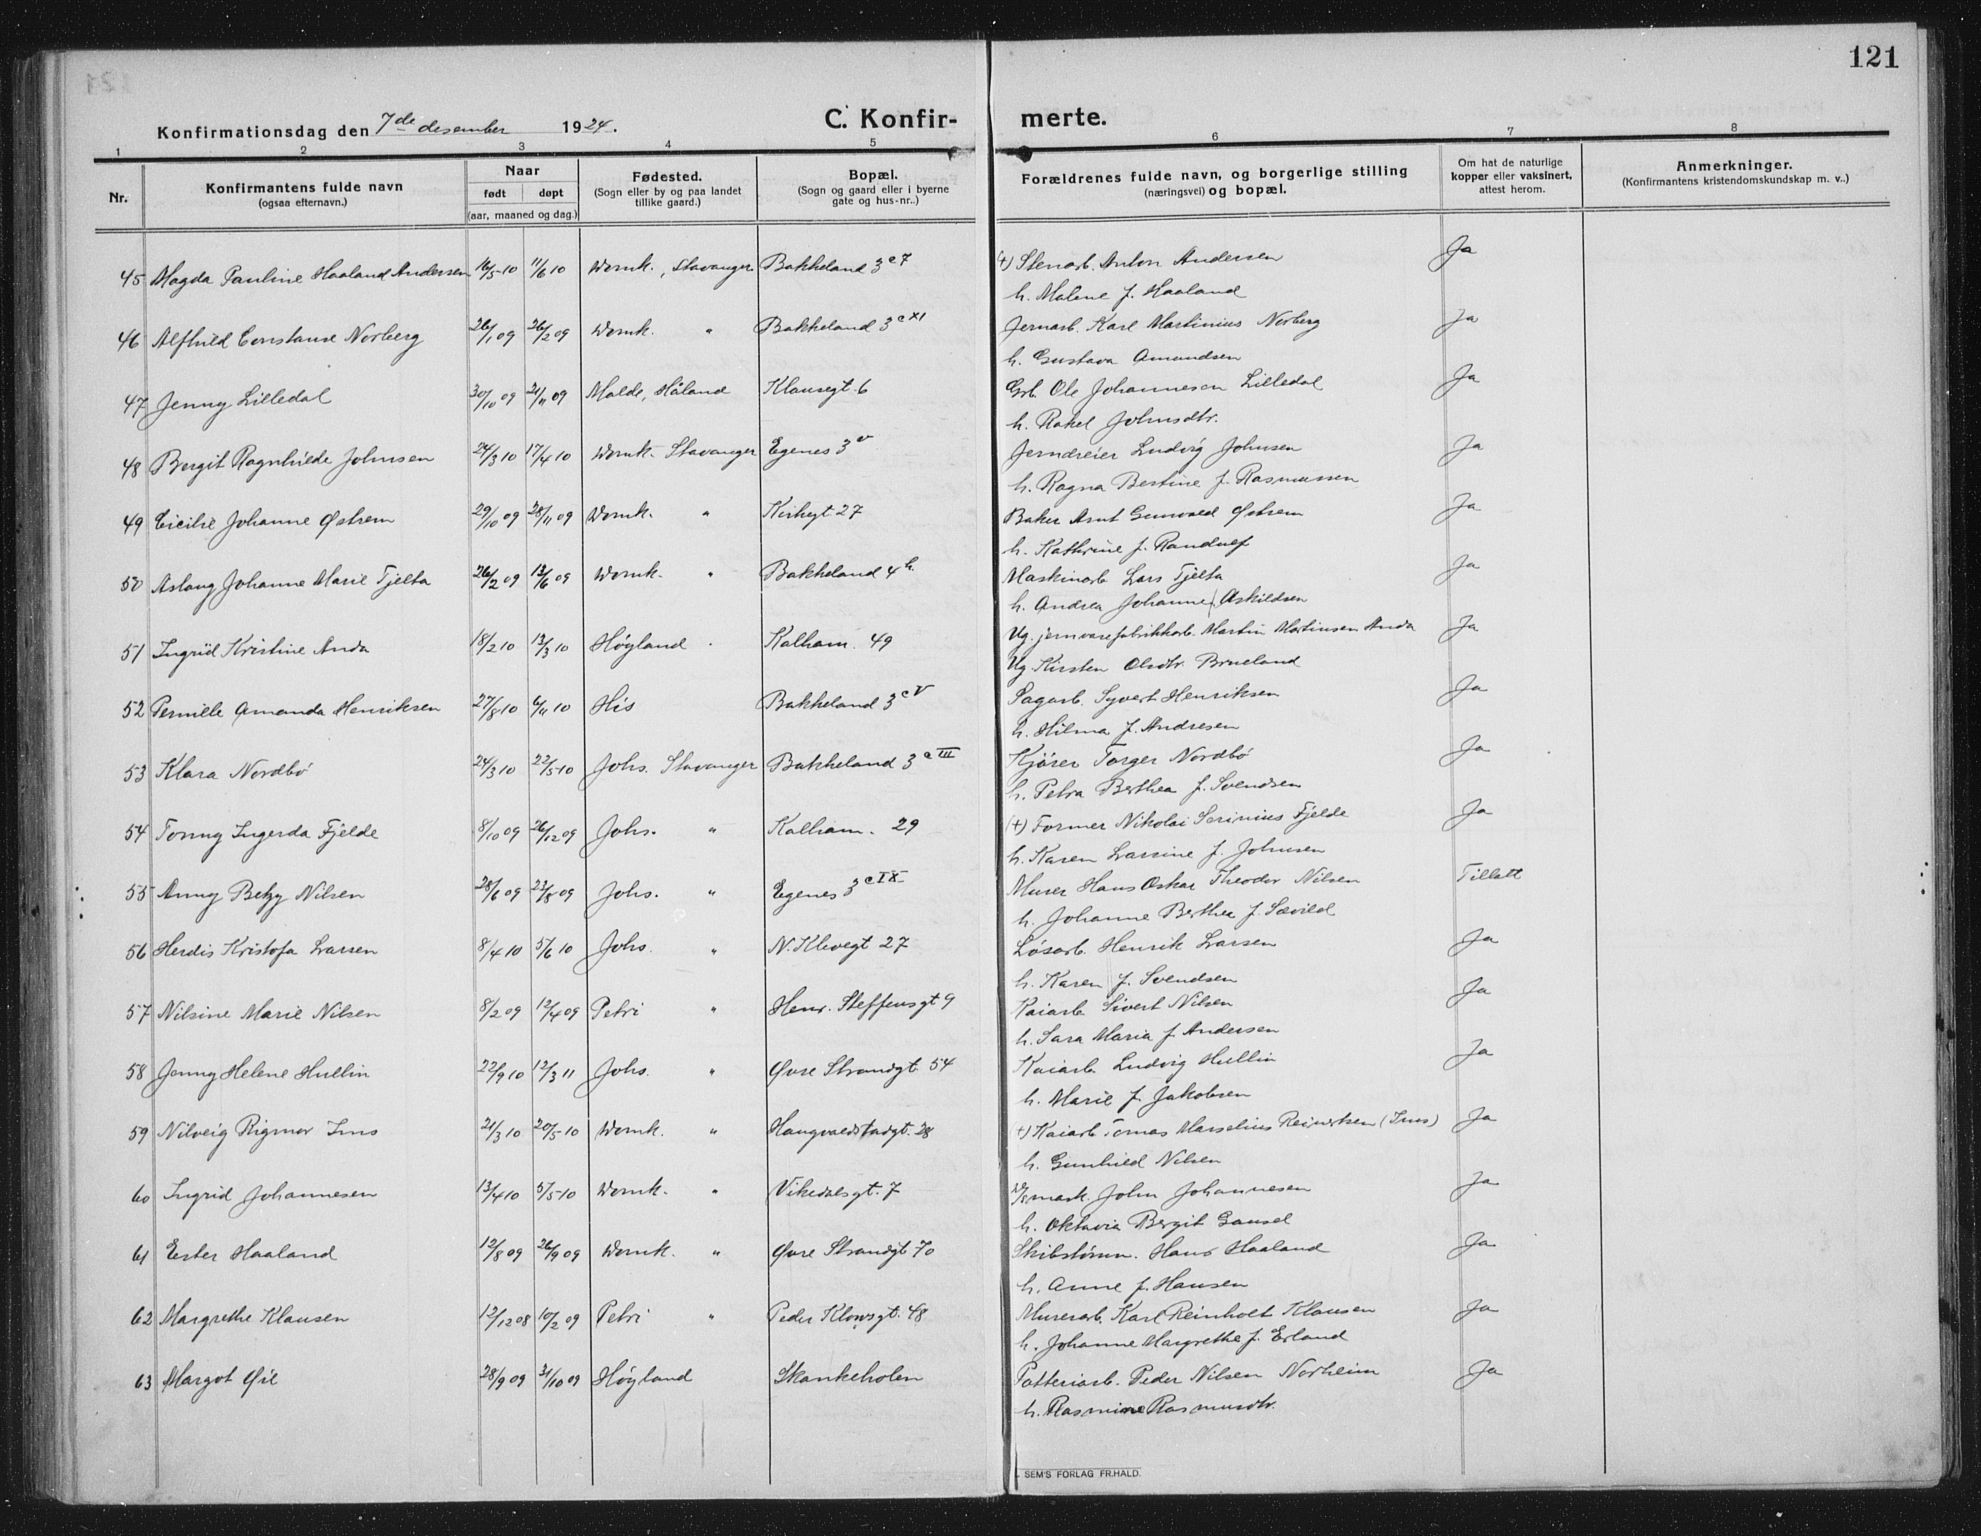 121
Konfirmationsdag den 7de desember 1924.
C. Konfirmerte.
1 2 3 4 5 6 7 8
Nr.
Konfirmantens fulde navn
(ogsaa efternavn.)
Naar
født døpt
(aar, maaned og dag.)
Fødested.
(Sogn eller by og paa landet
tillike gaard.)
Bopæl.
(Sogn og gaard eller i byerne
gate og hus-nr.)
Forældrenes fulde navn, og borgerlige stilling
(næringsvei) og bopæl.
Om hat de naturlige
kopper eller vaksinert,
attest herom.
Anmerkninger.
(Konfirmantens kristendomskundskap m. v..)
45 Magda Pauline Haaland Andersen 16/5-10 11/6 10 Domk., Stavanger Bakkeland 3 c 7 (+) Stenarb. Anton Andersen Ja
h. Malene f. Haaland
46 Alfhild Constanse Norberg 26/1 09 26/2 09 Domk. " Bakkeland 3 c XI Jernarb. Karl Martinius Norberg Ja
h. Gustava Amundsen
47 Jenny Lilledal 30/10 09 21/11 09 Malde, Håland Klausegt. 6 Grb. Ole Johannesen Lilledal Ja
h. Rakel Johnsdtr.
48 Bergit Ragnhilde Johnsen 24/3 10 17/4 10 Domk. Stavanger Egenes 3 v Jerndreier Ludvig Johnsen Ja
h. Ragna Bertine f. Rasmussen
49 Cicilie Johanne Østrem 29/10 09 28/11 09 Domk. " Kirkegt 27 Baker Arnt Gunvald Østrem Ja
h. Kathrine f. Randulf
50 Aslaug Johanne Marie Tjelta 26/2 09 13/6 09 Domk. " Bakkeland 4 h. Maskinarb Lars Tjelta Ja
h. Andrea Johanne Askildsen
51 Ingrid Kristine Anda 18/2 10 13/3 10 Høyland Kalham. 49 Ug. jernvarefabrikkarb. Martin Martinsen Anda Ja
Ug. Kirsten Olsdtr. Brueland
52 Pernille Amanda Henriksen 27/8 10 6/11 10 His Bakkeland 3 c V Sagarb. Syvert Henriksen Ja
h. Hilma f. Andresen
53 Klara Nordbö 24/3 10 22/5-10 Johs. Stavanger Bakkeland 3 c III Kjörer Torger Nordbö Ja
h. Petra Berthea f. Svendsen
54 Tonny Ingerda Fjelde 8/10 09 26/12 09 Johs. " Kalham. 29 (+) Former Nikolai Serinius Fjelde Ja
h. Karen Larsine f. Johnsen
55 Anny Betzy Nilsen 28/6 09 23/8 09 Johs. " Egenes 3 c IX Murer Hans Oskar Theodor Nilsen Tillatt
h. Johanne Berthea f. Sævild
56 Herdis Kristofa Larsen 8/4 10 5/6 10 Johs. " N. Klevegt 27 Løsarb. Henrik Larsen Ja
h. Karen f. Svendsen
57 Nilsine Marie Nilsen 8/2 09 12/4 09 Petri " Henr. Steffensgt 9 Kaiarb Sivert Nilsen Ja
h. Sara Maria f. Andersen
58 Jenny Helene Hullin 22/9 10 12/3 11 Johs. " Øvre Strandgt 54 Kaiarb Ludvig Hullin Ja
h. Marie f. Jakobsen
59 Nilveig Rigmor Ims 21/3 10 20/5-10 Domk. " Haugvaldstadgt. 28 +) Kaiarb Tomas Marselius Reinertsen (Ims) Ja
h. Gunhild Nilsen
60 Ingrid Johannesen 13/4 10 5/5-10 Domk. " Vikedalsgt. 7 mask. John Johannesen Ja
h. Oktavia Bergit Gausel
61 Ester Haaland 12/8 09 26/9 09 Domk. " Øvre Strandgt 70 Skibstömm. Hans Haaland Ja
h. Anne f. Hansen
62 Margrethe Klausen 12/12 08 10/2 09 Petri " Peder Klowsgt. 48 Murerarb. Karl Reinholt Klausen Ja
h. Johanne Margrethe f. Erland
63 Margot Øie 28/9 09 31/10 09 Høyland Skankeholen Potteriarb. Peder Nilsen Norheim Ja
h. Rasmine Rasmusdtr.
SEM'S FORLAG FR.HALD.